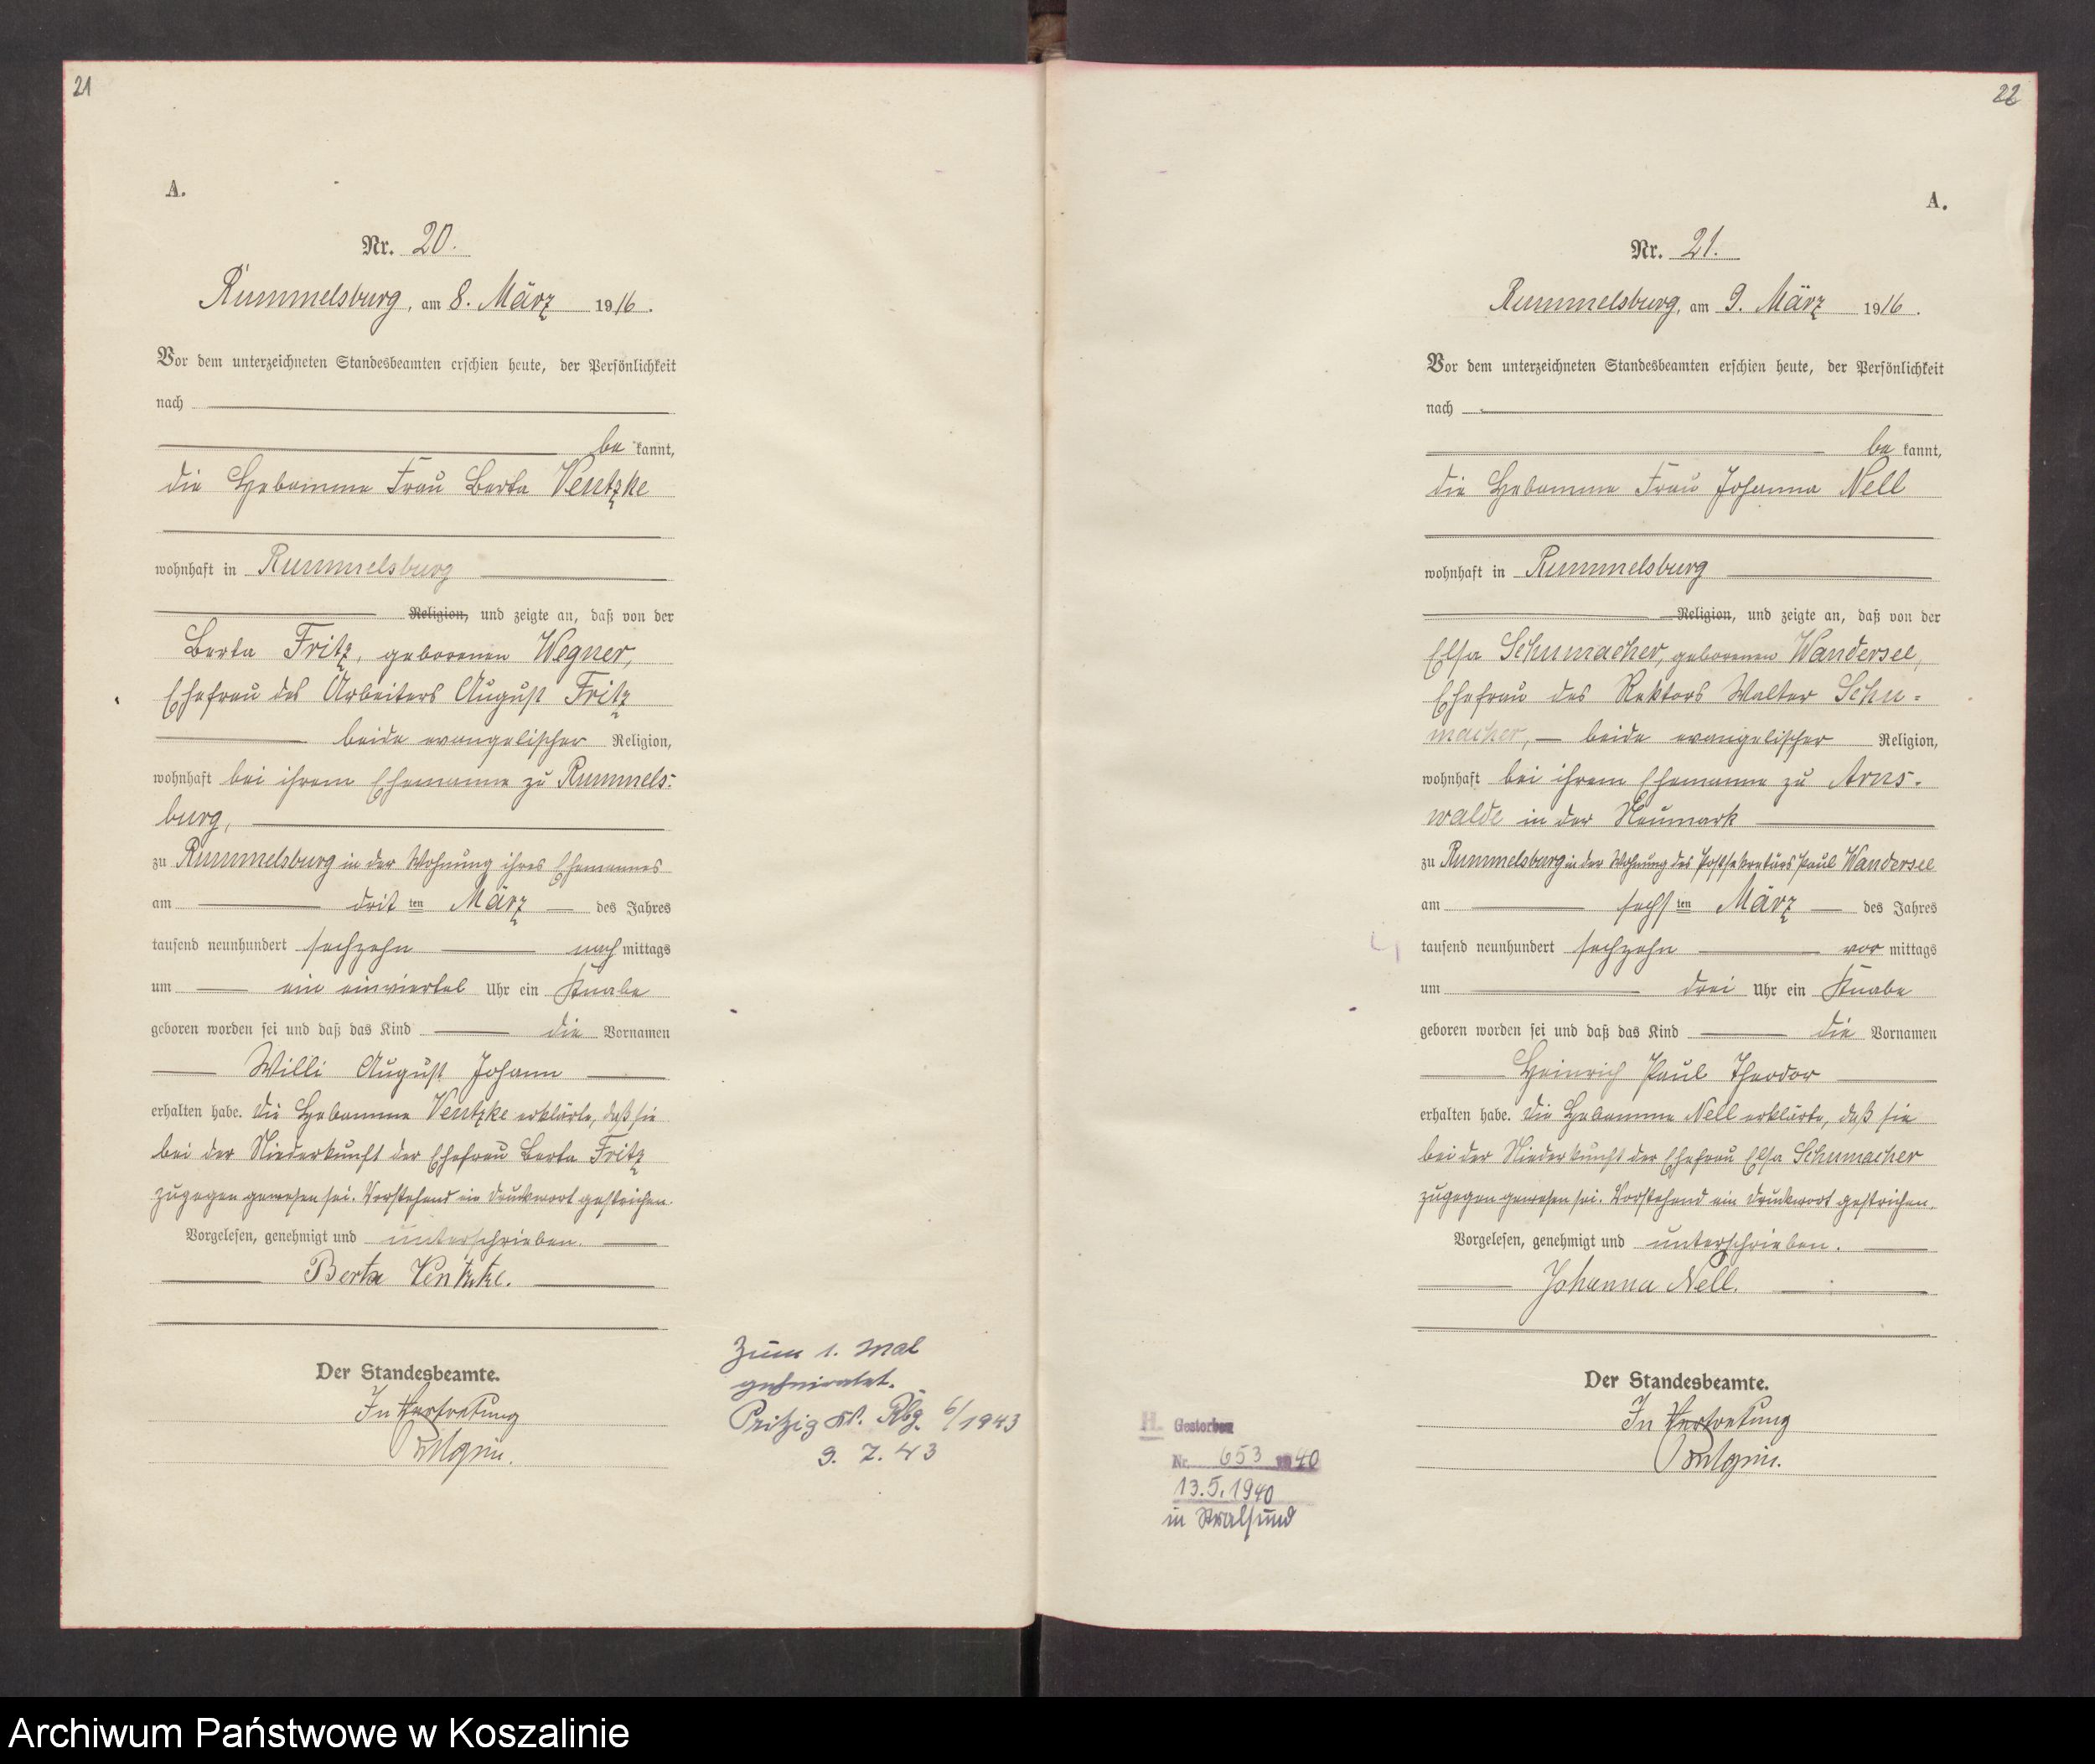 21
A.
Nr. 20.
Rummelsburg, am 8. März 1916.
Vor dem unterzeichneten Standesbeamten erschien heute, der Persönlichkeit
nach
be kannt,
die Hebamme Frau Berta Ventzke
wohnhaft in Rummelsburg
Religion, und zeigte an, daß von der
Berta Fritz, geborenen Wegner,
Ehefrau des Arbeiters August Fritz
beide evangelischer Religion,
wohnhaft bei ihrem Ehemanne zu Rummels-
burg,
zu Rummelsburg in der Wohnung ihres Ehemannes
am dritten März des Jahres
tausend neunhundert sechzehn nach mittags
um ein einviertel Uhr ein Knabe
geboren worden sei und daß das Kind die Vornamen
Willi August Johann
erhalten habe. Die Hebamme Ventzke erklärte, daß sie
bei der Niederkunft der Ehefrau Berta Fritz
zugegen gewesen sei. Vorstehend ein Druckwort gestrichen.
Vorgelesen, genehmigt und unterschrieben.
Berta Ventzke.
Der Standesbeamte.
In Vertretung
Zum 1. Mal
geheiratet.
Pritzig Kr. Rbg. 6/1943
9. 7. 43
22
A.
Nr. 21.
Rummelsburg, am 9. März 1916.
Vor dem unterzeichneten Standesbeamten erschien heute, der Persönlichkeit
nach
be kannt,
die Hebamme Frau Johanna Nell
wohnhaft in Rummelsburg
Religion, und zeigte an, daß von der
Elsa Schumacher, geborenen Wandersee,
Ehefrau des Rektors Walter Schu-
macher, beide evangelischer Religion,
wohnhaft bei ihrem Ehemanne zu Arns-
walde in der Neumark
zu Rummelsburg in der Wohnung des Postsekretärs Paul Wandersee
am sechsten März des Jahres
tausend neunhundert sechzehn vor mittags
um drei Uhr ein Knabe
geboren worden sei und daß das Kind die Vornamen
Heinrich Paul Theodor
erhalten habe. Die Hebamme Nell erklärte, daß sie
bei der Niederkunft der Ehefrau Elsa Schumacher
zugegen gewesen sei. Vorstehend ein Druckwort gestrichen.
Vorgelesen, genehmigt und unterschrieben.
Johanna Nell.
Der Standesbeamte.
In Vertretung
H. Gestorben
Nr. 653 1940
13.5.1940
in Stralsund
Archiwum Państwowe w Koszalinie